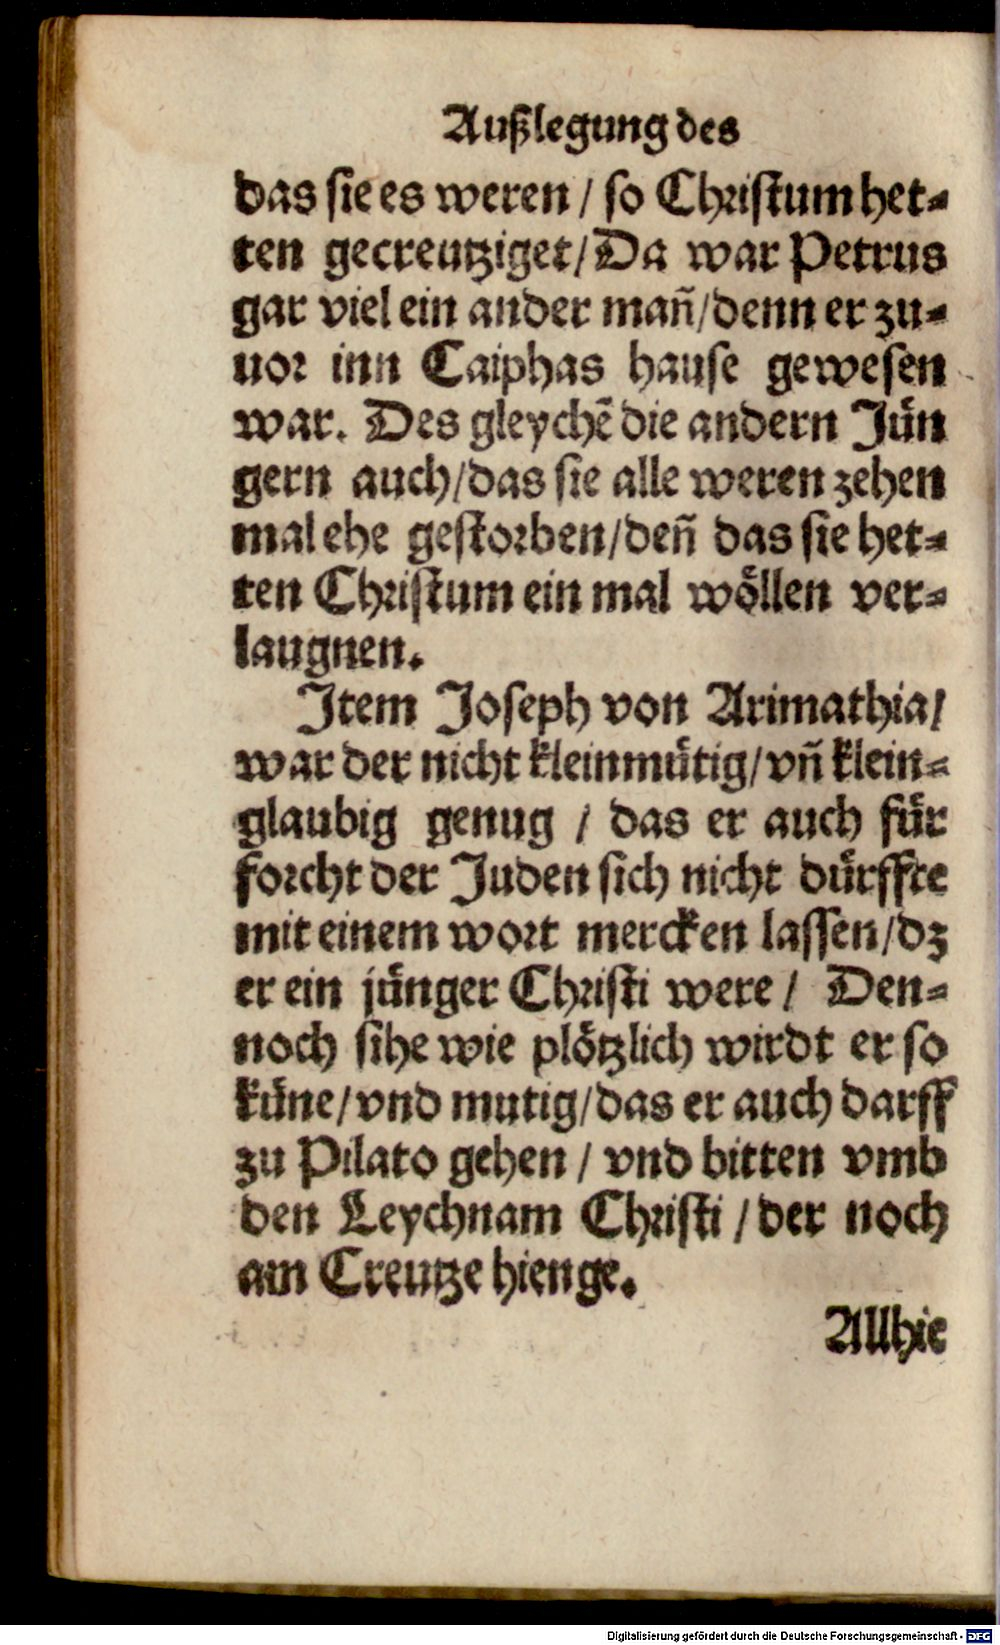 Außlegung des
das sie es weren / so Christum het-
ten gecreutziget / Da war Petrus
gar viel ein ander mañ / denn er zu-
uor inn Caiphas hause gewesen
war. Des gleychẽ die andern Jün
gern auch / das sie alle weren zehen
mal ehe gestorben / deñ das sie het-
ten Christum ein mal wöllen ver-
laugnen.
Item Joseph von Arimathia /
war der nicht kleinmütig / vñ klein-
glaubig genug / das er auch für
forcht der Juden sich nicht dürffte
mit einem wort mercken lassen / dz
er ein jünger Christi were / Den-
noch sihe wie plötzlich wirdt er so
küne / vnd mutig / das er auch darff
zu Pilato gehen / vnd bitten vmb
den Leychnam Christi / der noch
am Creutze hienge.
Allhie
Digitalisierung gefördert durch die Deutsche Forschungsgemeinschaft - DFG